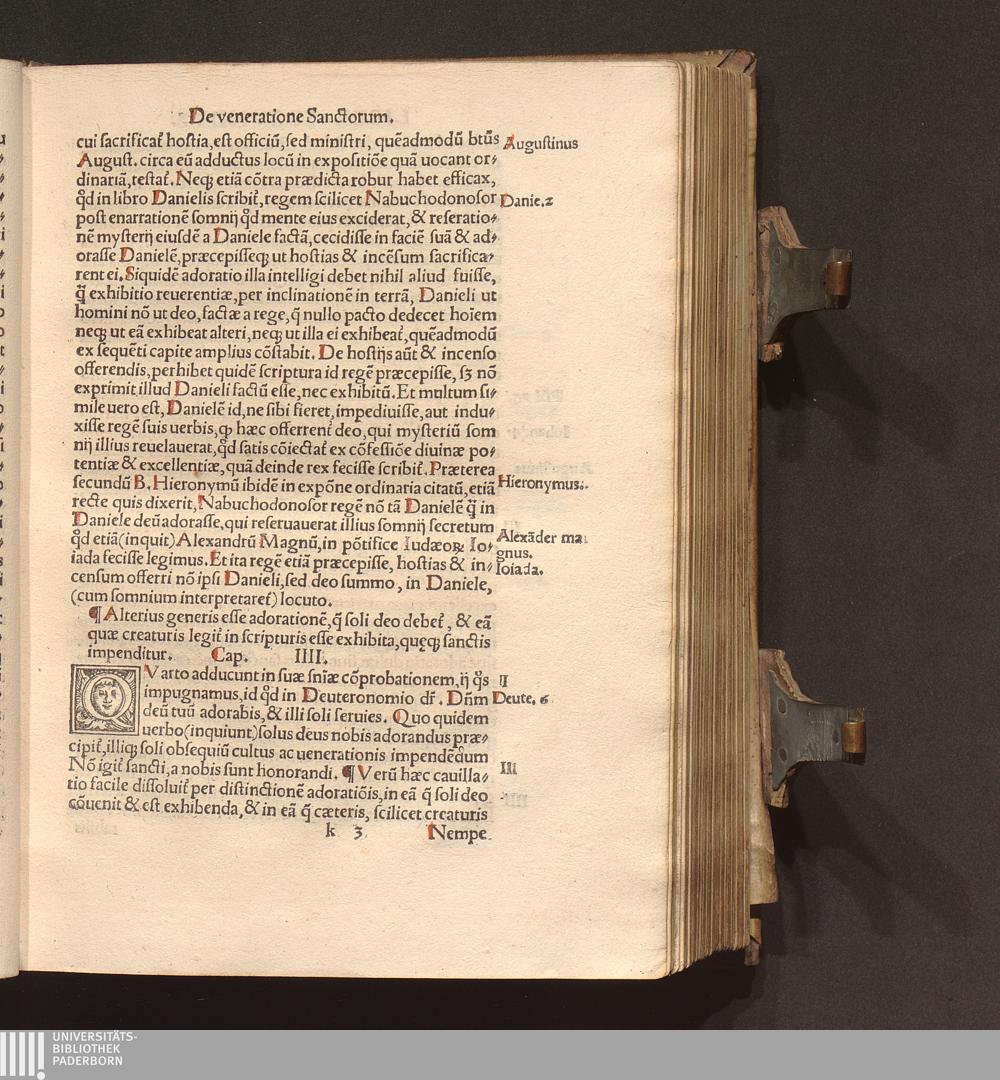 De veneratione Sanctorum.
cui sacrificat̃ hostia, est officiũ, sed ministri, quẽadmodũ btũs
Augustinus
August. circa eũ adductus locũ in expositiõe quã uocant or⸗
dinariã, testat̃. Neqꝫ etiã cõtra prædicta robur habet efficax,
q̃d in libro Danielis scribit̃, regem scilicet Nabuchodonosor
Danie. 2
post enarrationẽ somnij q̃d mente eius exciderat, & reseratio⸗
nẽ mysterij eiusdẽ a Daniele factã, cecidisse in faciẽ suã & ad⸗
orasse Danielẽ, præcepisseqꝫ ut hostias & incẽsum sacrifica⸗
rent ei. Siquidẽ adoratio illa intelligi debet nihil aliud fuisse,
q̃ exhibitio reuerentiæ, per inclinationẽ in terrã, Danieli ut
homini nõ ut deo, factæ a rege, q̃ nullo pacto dedecet hoiem
neqꝫ ut eã exhibeat alteri, neqꝫ ut illa ei exhibeat̃, quẽadmodũ
ex sequẽti capite amplius cõstabit. De hostijs aũt & incenso
offerendis, perhibet quidẽ scriptura id regẽ præcepisse, sꝫ nõ
exprimit illud Danieli factũ esse, nec exhibitũ. Et multum si⸗
mile uero est, Danielẽ id, ne sibi fieret, impediuisse, aut indu⸗
xisse regẽ suis uerbis, ꝙ hæc offerrent̃ deo, qui mysteriũ som
nij illius reuelauerat, q̃d satis cõiectat̃ ex cõfessiõe diuinæ po⸗
tentiæ & excellentiæ, quã deinde rex fecisse scribit̃. Præterea
secundũ B. Hieronymũ ibidẽ in expõne ordinaria citatũ, etiã
Hieronymus.
recte quis dixerit, Nabuchodonosor regẽ nõ tã Danielẽ q̃ in
Daniele deũ adorasse, qui reseruauerat illius somnij secretum
q̃d etiã (inquit) Alexandrũ Magnũ, in põtifice Iudæoꝝ Io⸗
Alexãder ma
gnus.
iada fecisse legimus. Et ita regẽ etiã præcepisse, hostias & in⸗
Ioiada.
censum offerri nõ ipsi Danieli, sed deo summo, in Daniele,
(cum somnium interpretaret̃) locuto.
¶ Alterius generis esse adorationẽ, q̃ soli deo debet̃, & eã
quæ creaturis legit̃ in scripturis esse exhibita, quęqꝫ sanctis
impenditur. Cap. IIII.
QVarto adducunt in suæ sñiæ cõprobationem, ij q̃s
II
impugnamus, id q̃d in Deuteronomio dr̃. Dñm
Deute. 6
deũ tuũ adorabis, & illi soli seruies. Quo quidem
uerbo (inquiunt) solus deus nobis adorandus præ⸗
cipit̃, illiqꝫ soli obsequiũ cultus ac uenerationis impendẽdum
Nõ igit̃ sancti, a nobis sunt honorandi. ¶ Verũ hæc cauilla⸗
III
tio facile dissoluit̃ per distinctionẽ adoratiõis, in eã q̃ soli deo
cõuenit & est exhibenda, & in eã q̃ cæteris, scilicet creaturis
k 3
Nempe
UNIVERSITÄTS-
BIBLIOTHEK
PADERBORN